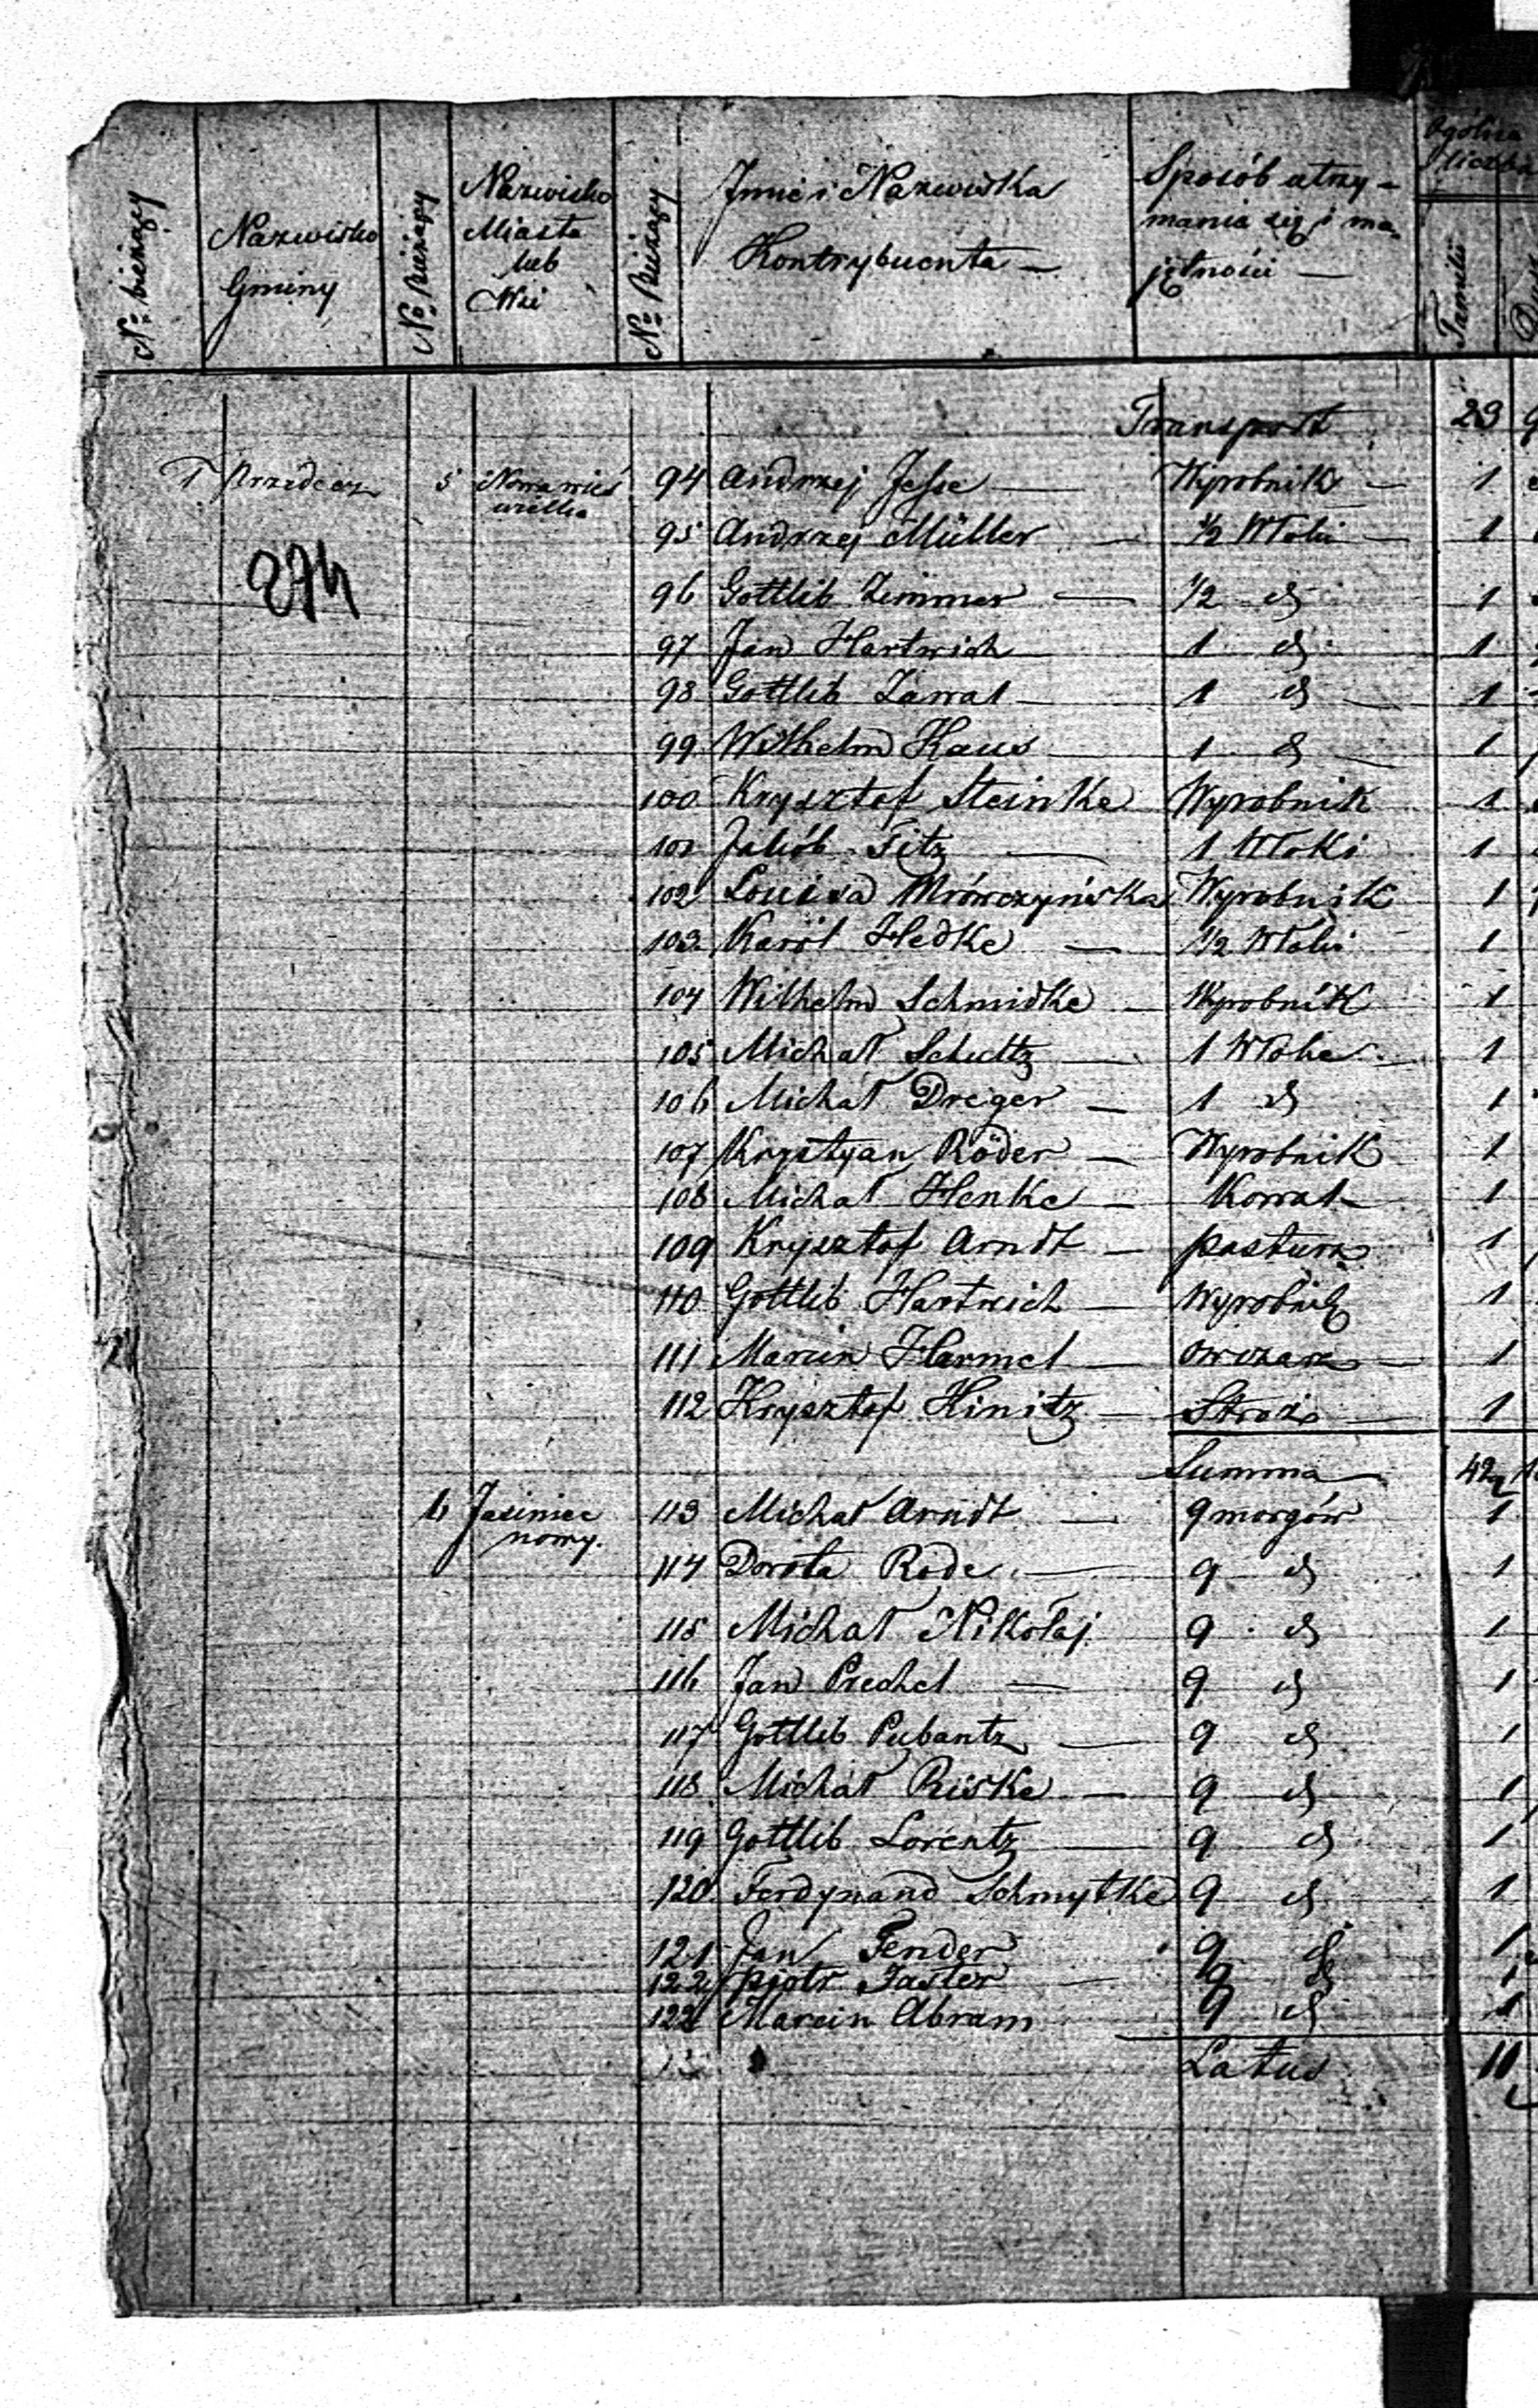 Nº bieżący
Nazwisko Gminy
Nº Bieżący
Nazwisko Miasta lub Wsi
Nº Bieżący
Jmie i Nazwiska Kontrybuenta —
Sposób utrzy-
mania się i ma-
jętności —
Ogólna liczba
Familii
Transport 23
Przedecz 5 Nowawieś 94 Andrzej Jesse — Wyrobnik — 1
wielka
95 Andrzej Müller — ½ Włoki — 1
274
96 Gottlib Zimmer — ½ d 1
97 Jan Hartwich 1 d 1
98 Gottlib Zawal — 1 d — 1
99 Wilhelm Haus 1 d 1
100 Krysztof Steinke Wyrobnik 1
101 Jakób Fitz — 1 Włoki 1
102 Louisa Mrówczyńska Wyrobnik 1
103 Karól Hedke — ½ Włoki 1
104 Wilhelm Schmidke — Wyrobnik 1
105 Michał Schultz — 1 Włoke 1
106 Michał Dreger — 1 d 1
107 Krystyan Röder — Wyrobnik 1
108 Michał Henke — Kowal 1
109 Krysztof Arndt — pasturz 1
110 Gottlib Hartwich — Wyrobnik 1
111 Marcin Harmel — Owczarz — 1
112 Krysztof Hinitz — Stroż — 1
Summa 42
6 Jasiniec 113 Michał Arndt — 9 morgów 1
nowy.
114 Dorota Rode — 9 d 1
115 Michał Nikołaj 9 d 1
116 Jan Prechel — 9 d 1
117 Gottlib Pubantz — 9 d 1
118 Michał Riske — 9 d 1
119 Gottlib Lorentz — 9 d 1
120 Ferdynand Schmytke 9 d 1
121 Jan Fender 9 d 1
122 Piotr Jaster — 9 d 1
122 Marcin Abram 9 d 1
Latus 11